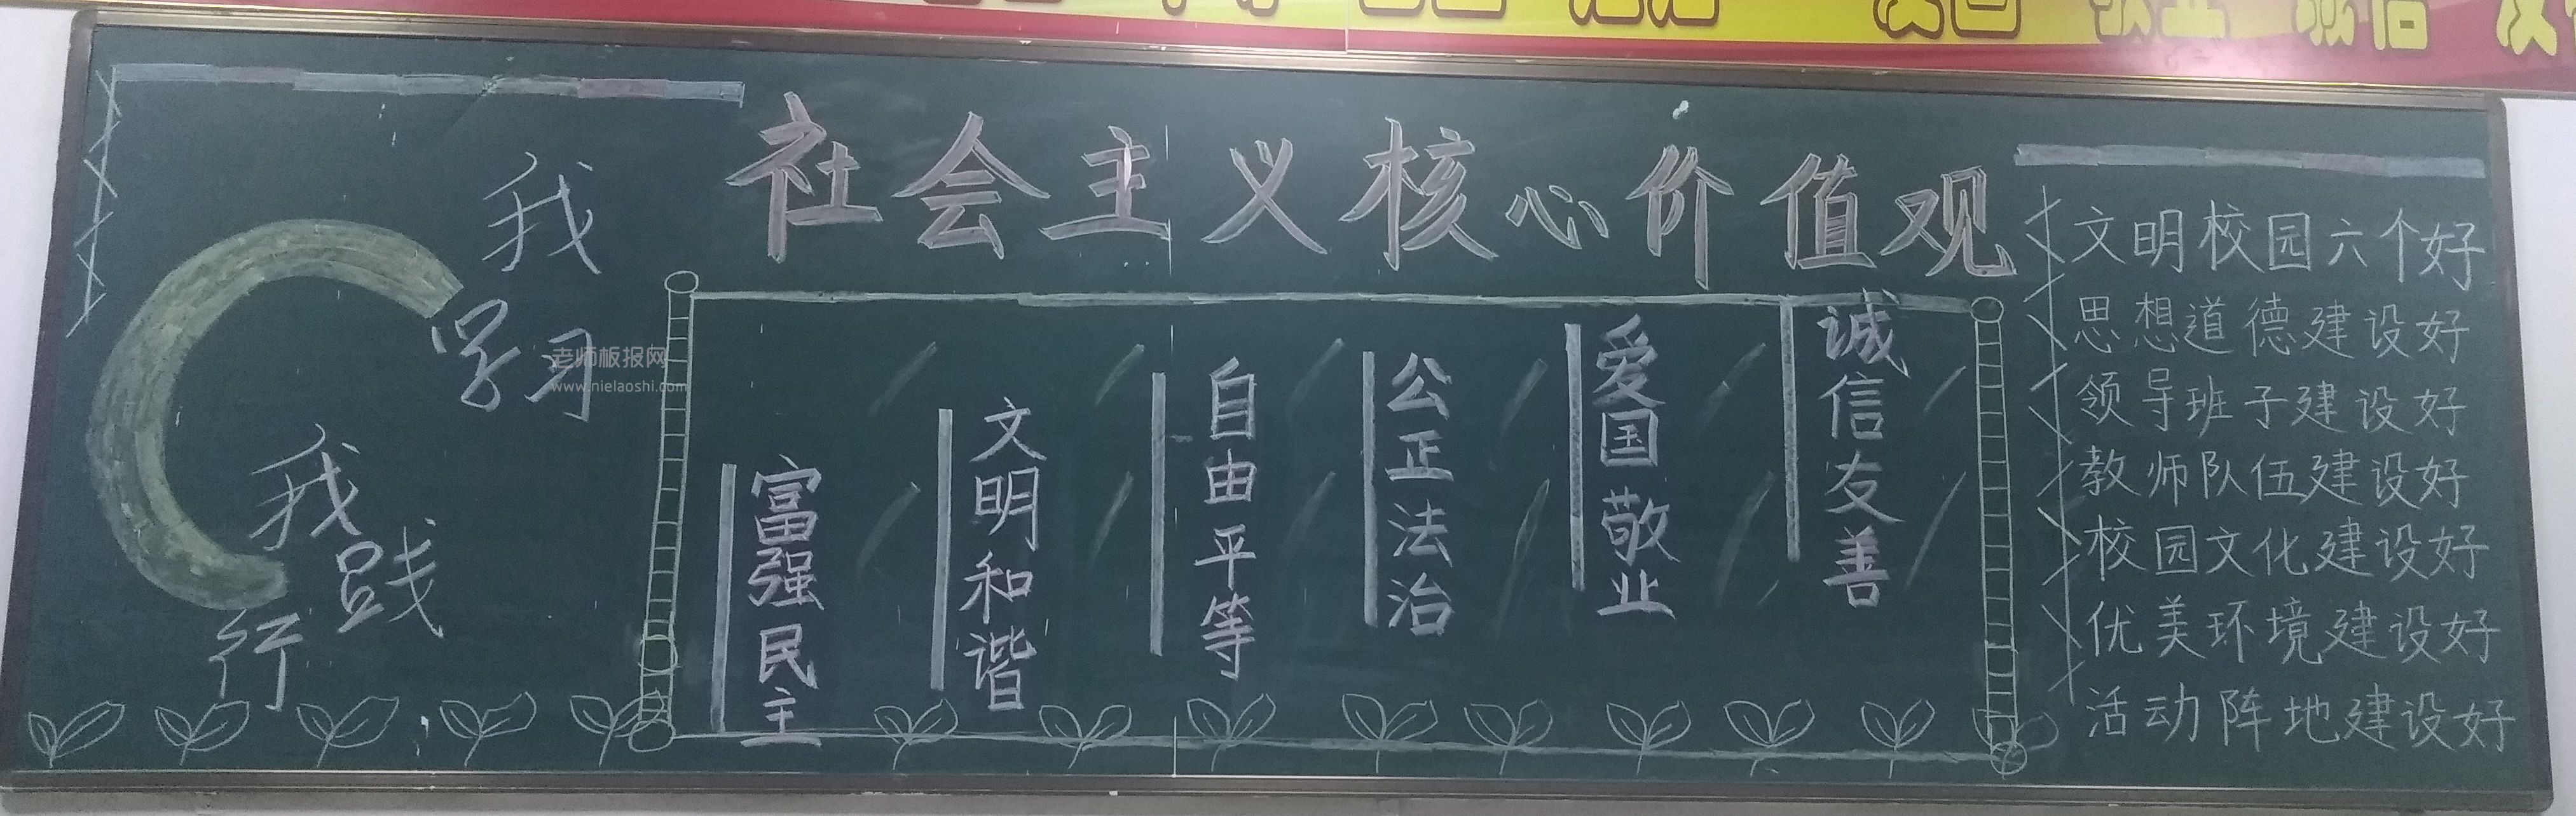 社会主义核心价值观
我
学习
我
践
行
老师板报网
www.nielaoshi.com
富强民主
文明和谐
自由平等
公正法治
爱国敬业
诚信友善
文明校园六个好
思想道德建设好
领导班子建设好
教师队伍建设好
校园文化建设好
优美环境建设好
活动阵地建设好